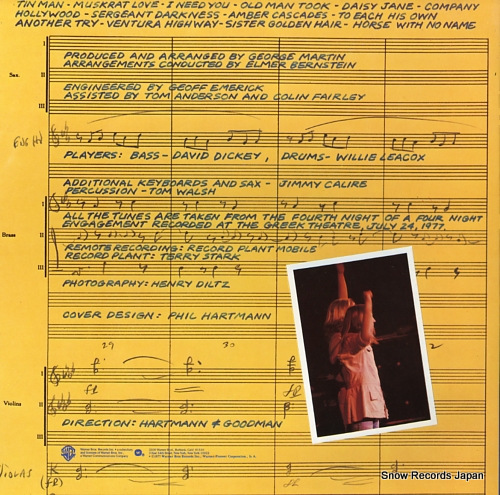 TIN MAN - MUSKRAT LOVE - I NEED YOU - OLD MAN TOOK - DAISY JANE - COMPANY
HOLLYWOOD - SERGEANT DARKNESS - AMBER CASCADES - TO EACH HIS OWN
ANOTHER TRY - VENTURA HIGHWAY - SISTER GOLDEN HAIR - HORSE WITH NO NAME
I
PRODUCED AND ARRANGED BY GEORGE MARTIN
ARRANGEMENTS CONDUCTED BY ELMER BERNSTEIN
Sax.
II
ENGINEERED BY GEOFF EMERICK
ASSISTED BY TOM ANDERSON AND COLIN FAIRLEY
III
ENG HN
PLAYERS: BASS - DAVID DICKEY, DRUMS - WILLIE LEACOX
ADDITIONAL KEYBOARDS AND SAX - JIMMY CALIRE
PERCUSSION - TOM WALSH
I
ALL THE TUNES ARE TAKEN FROM THE FOURTH NIGHT OF A FOUR NIGHT
ENGAGEMENT RECORDED AT THE GREEK THEATRE, JULY 24, 1977.
Brass
II
REMOTE RECORDING: RECORD PLANT MOBILE
RECORD PLANT: TERRY STARK
III
PHOTOGRAPHY: HENRY DILTZ
COVER DESIGN: PHIL HARTMANN
29 30 2
I
Violins
II
DIRECTION: HARTMANN & GOODMAN
III
VIOLAS
Snow Records Japan